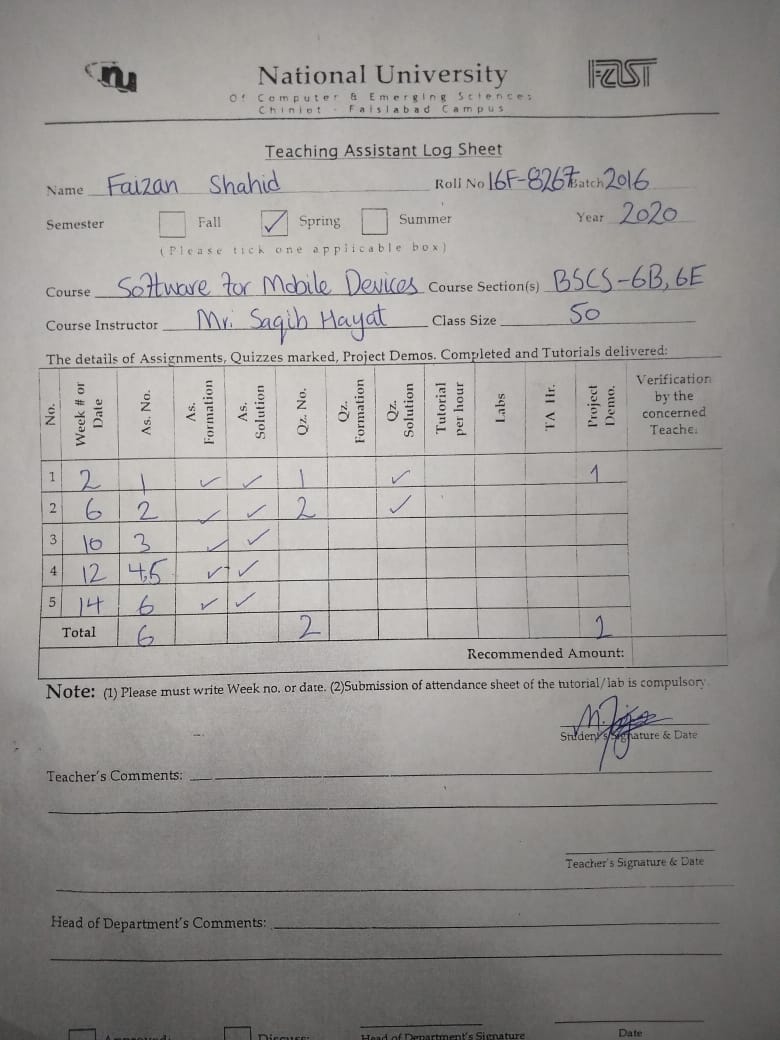 nu
National University
FAST
Of Computer & Emerging Sciences
Chiniot - Faislabad Campus
Teaching Assistant Log Sheet
Name Faizan Shahid Roll No 16F-8267 Batch 2016
Semester Fall ✓ Spring Summer Year 2020
(Please tick one applicable box)
Course Software for Mobile Devices Course Section(s) BSCS-6B, 6E
Course Instructor Mr. Saqib Hayat Class Size 50
The details of Assignments, Quizzes marked, Project Demos. Completed and Tutorials delivered:
No. Week # or Date As. No. As. Formation As. Solution Qz. No. Qz. Formation Qz. Solution Tutorial per hour Labs TA Hr. Project Demo. Verification by the concerned Teache.
1 2 1 ✓ ✓ 1 ✓ 1
2 6 2 ✓ ✓ 2 ✓
3 10 3 ✓ ✓
4 12 4,5 ✓ ✓
5 14 6 ✓ ✓
Total 6 2 1
Recommended Amount:
Note: (1) Please must write Week no. or date. (2)Submission of attendance sheet of the tutorial/lab is compulsory.
Student's Signature & Date
Teacher's Comments:
Teacher's Signature & Date
Head of Department's Comments:
Head of Department's Signature Date